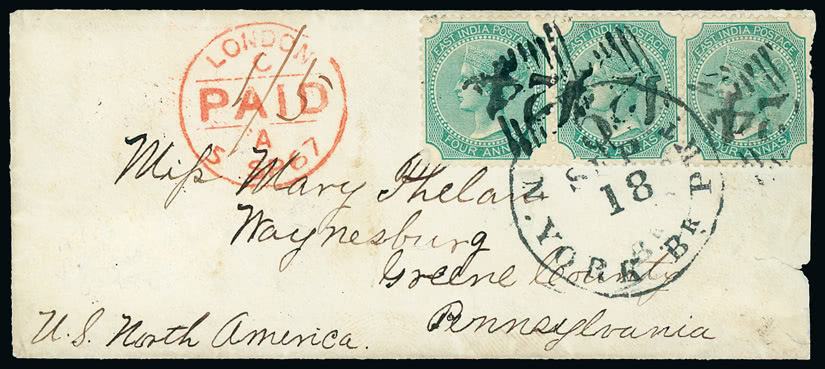 LONDON
C
PAID
A
67
1/5
EAST INDIA POSTAGE
FOUR ANNAS
EAST INDIA POSTAGE
EAST INDIA POSTAGE
FOUR ANNAS
SEP
18
N. YORK BR P
Miss Mary Phelan
Waynesburg
Greene County
Pennsylvania
U.S. North America.